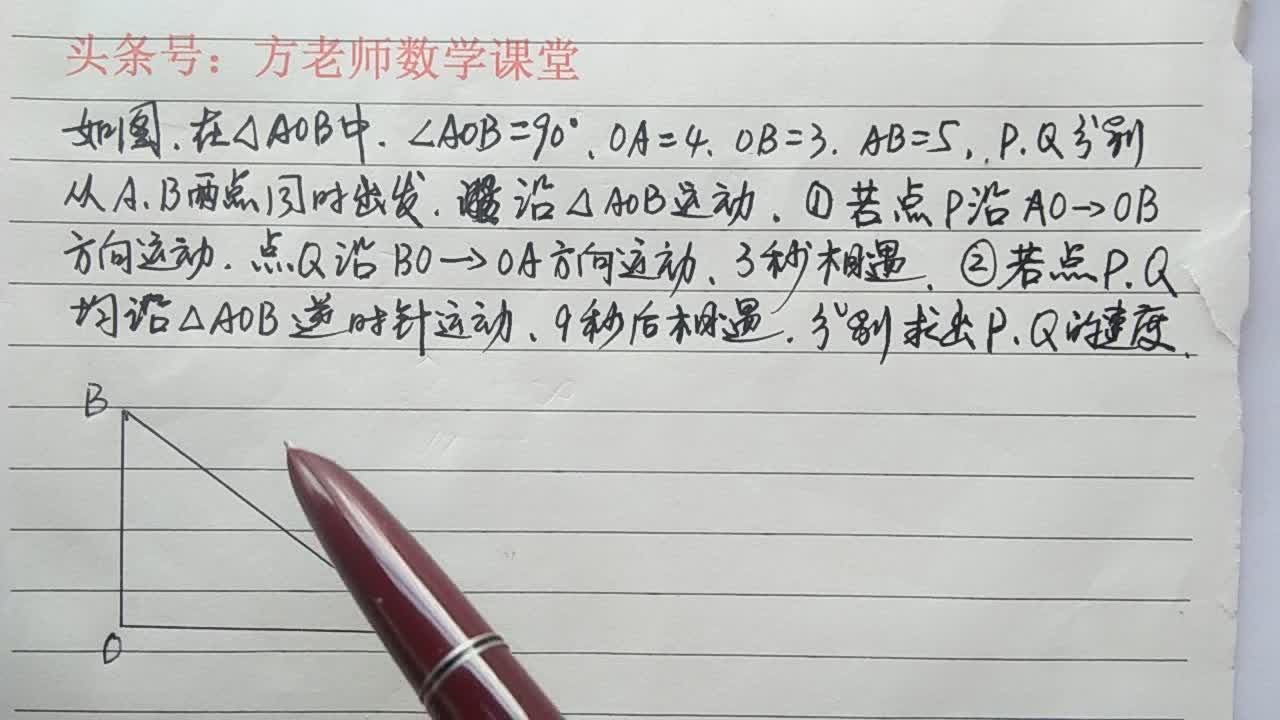 头条号：方老师数学课堂
如图.在△AOB中.∠AOB=90°、OA=4.OB=3.AB=5,.P.Q分别
从A、B两点同时出发.沿△AOB运动、①若点P沿AO→OB
方向运动.点Q沿BO→OA方向运动、3秒相遇.②若点P、Q
均沿△AOB逆时针运动、9秒后相遇.分别求出P、Q的速度.
B
O